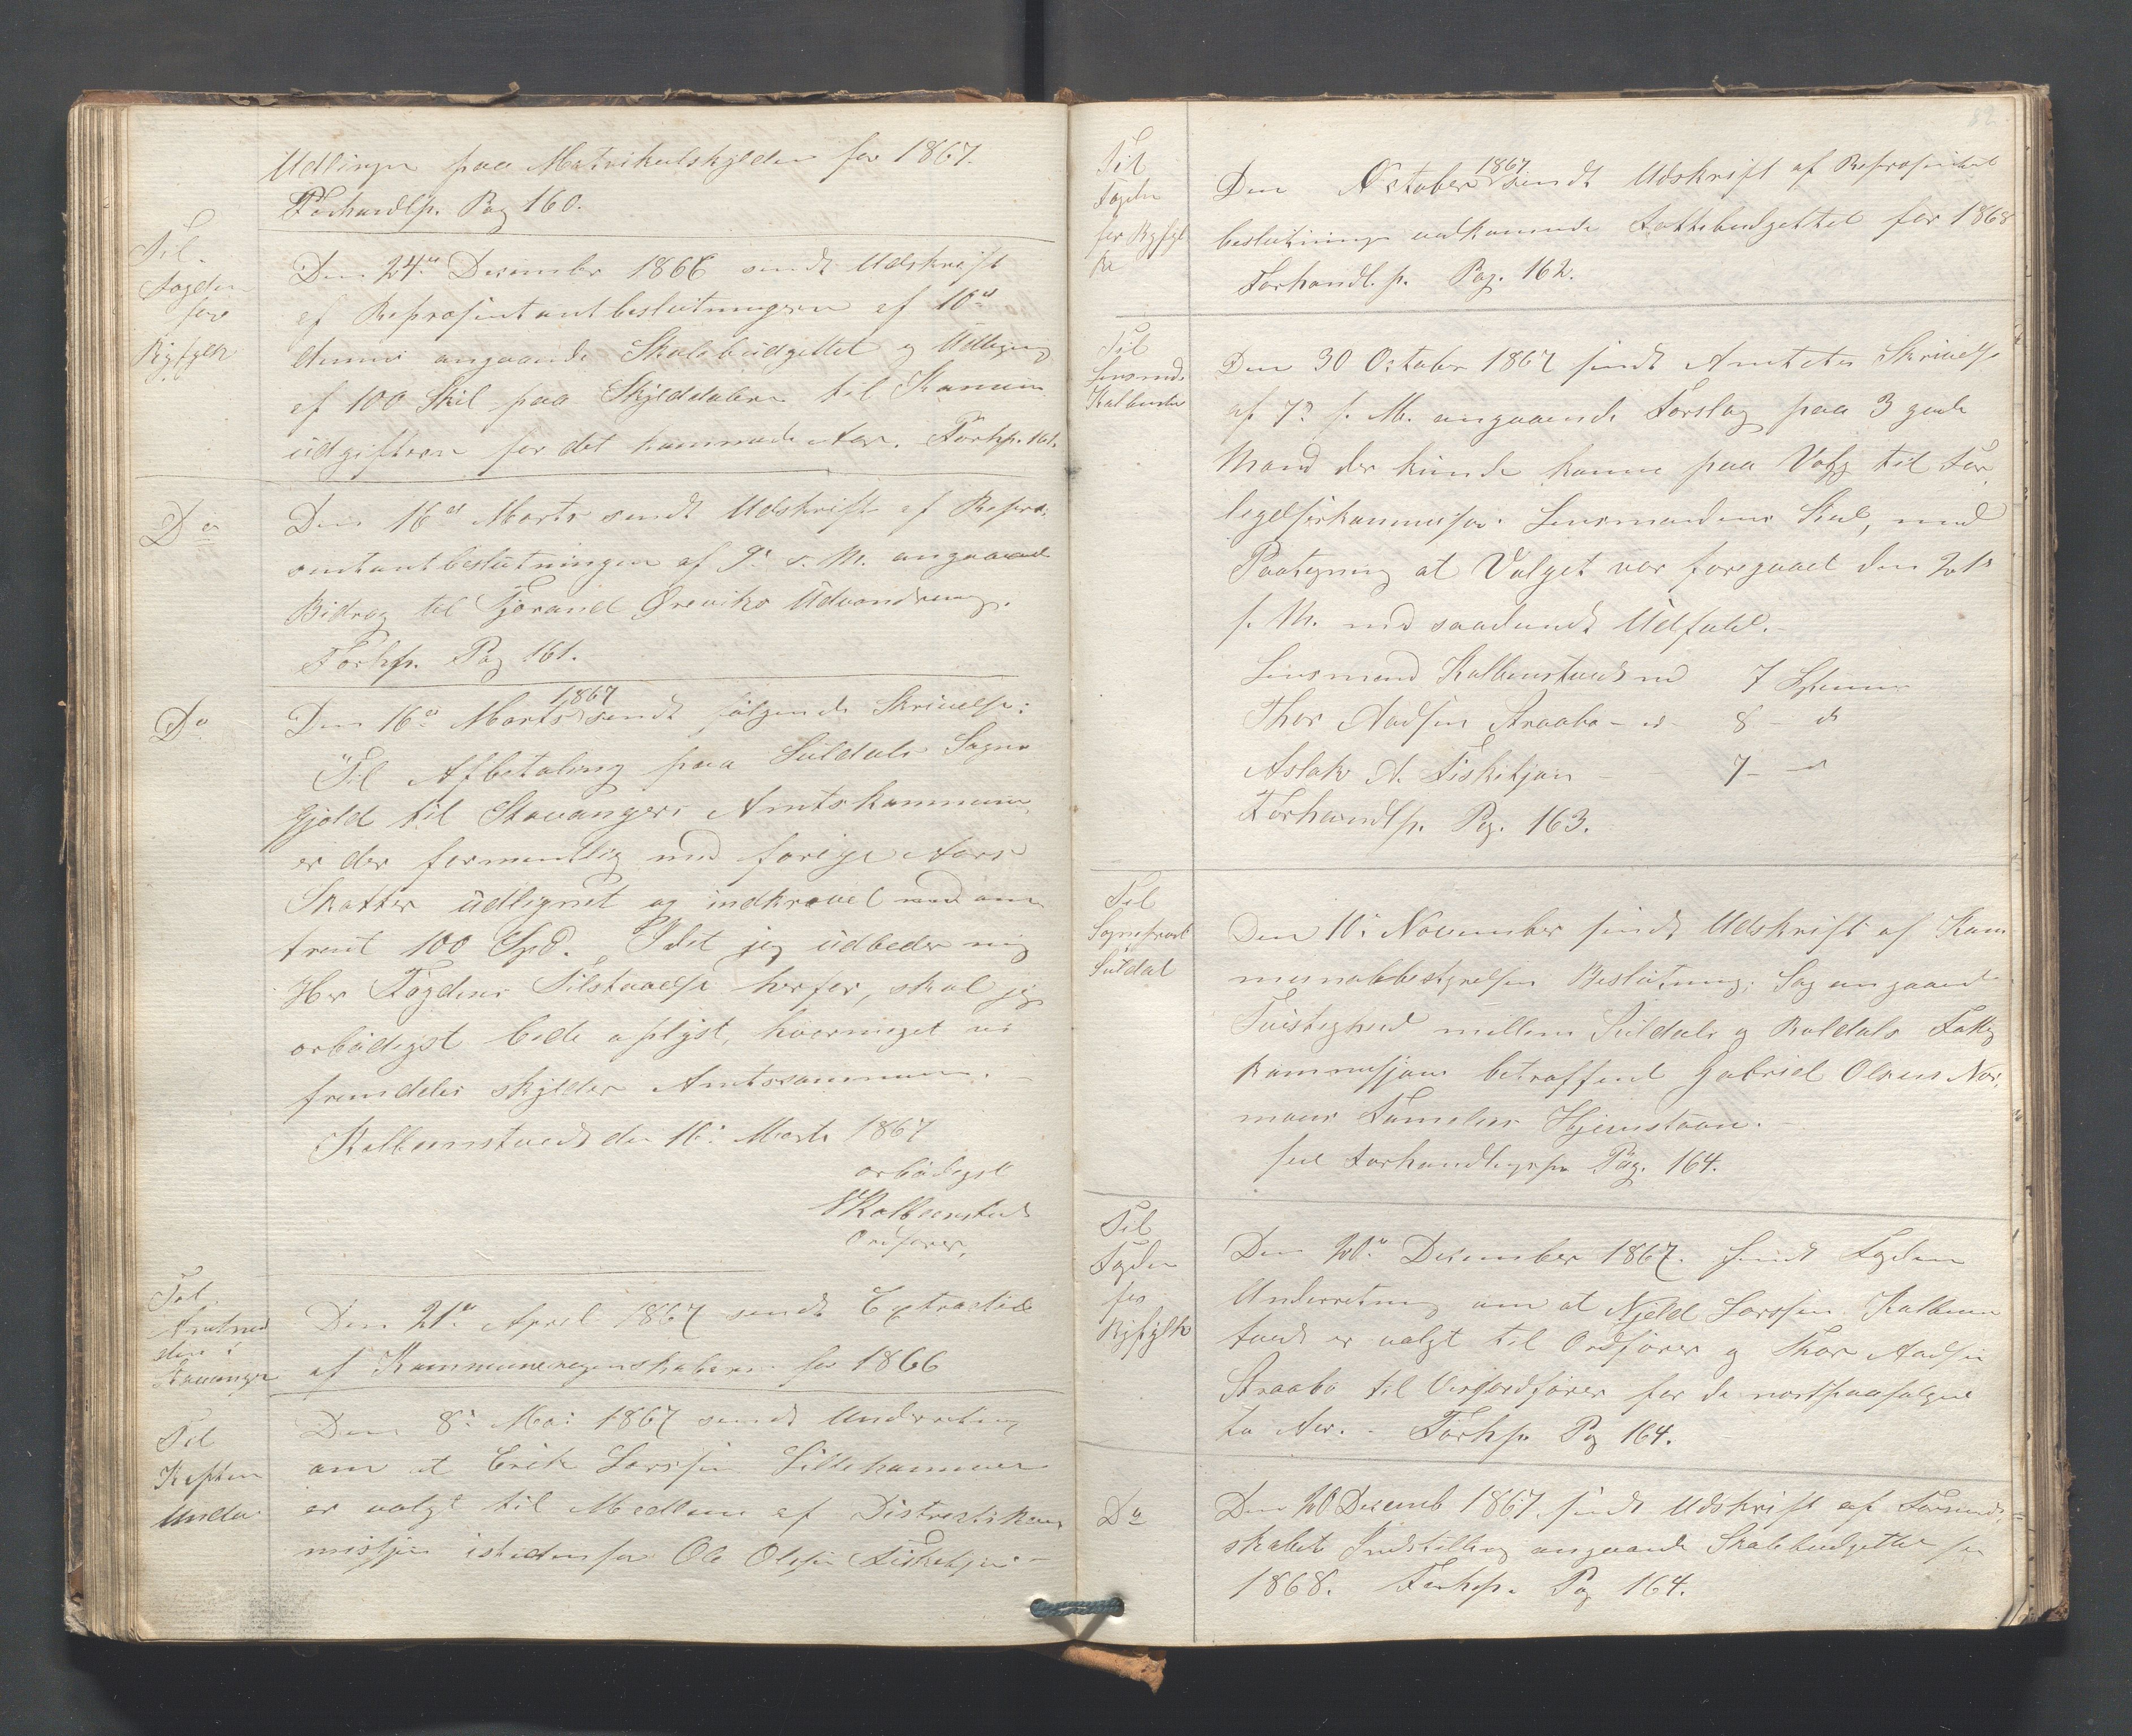 Udligen paa Matrikulskylden for 1867.
Forhandlp. Pag 160.
Til
Fogden
for
Ryfylke
Den 24de December 1866 sendt Udskrift
af Repræsentantbeslutningen af 10de
dennes angaaende Skolebudgettet og Udligning
af 100 Skil paa Skylddaleren til Kommun
udgifterne for det kommende Aar. Forhp. 161.
Do
Den 16de Marts sendt Udskrift af Repræ-
sentantbeslutningen af 9de s. M. angaaende
Bidrag til Gjerand Øreviks Udvandring.
Forhp. Pag 161.
Do
Den 16de Marts 1867 sendt følgende Skrivelse:
"Til Afbetaling paa Suldals Sogns
Gjæld til Stavangers Amtskommune
er der formentlig med forrige Aars
Skatter udlignet og indkrævet med om
trent 100 Spd. Idet jeg udbeder mig
Her Fogdens Tilstaaelse herfor, skal jeg
ærbødigst bede oplyst, hvormeget vi
fremdeles skylder Amtscommunen.
Kolbeinstvedt den 16de Marts 1867
ærbødigst
Kolbeinstvedt
Ordfører,
Til
Amtman
den i
Stavanger
Den 21de April 1867 sendt Extractid
af Kommuneregnskaberne for 1866
Til
Kaptein
Müller
Den 8de Mai 1867 sendt Underretning
om at Erik Larssen Lillehammer
er valgt til Medlem af Districtskom
missjon istedenfor Ole Olsen Fisketjøn
Til
Fogden
for Ryfyl
ke
Den October 1867 sendt Udskrift af Repræsentant
beslutninge vedkommende Fattibudgettet for 1868
Forhandl. p. Pag. 162.
Til
Lensmd.
Kolbenstv
Den 30 October 1867 sendt Amtets Skrivelse
af 7de s. M. angaaende Forslag paa 3 gode
Mænd der kunde komme paa Valg til For
ligelseskommissær i Lensmandens Sted, med
Paategning at Valget var foregaaet den 21de
s. M. med saadandt Udfald.
Lensmand Kolbenstvedt med 7 Stemmer
Thor Aadsen Straabø - d - 8 - d
Aslak A. Fisketjøn - 7 - d
Forhandlp. Pg. 163.
Til
Sogneprest
Suldal
Den 10de November sendt Udskrift af Kom
munalbestyrelsen Beslutning i Sag angaaend
Tvistighed mellem Suldals og Røldals Fattig
kommissjon betreffend Gabriel Olsen Nor
mans Families Hjemstavn.
see Forhandlingsp. Pag. 164.
Til
Fogden
for
Ryfylke
Den 20de December 1867. sendt Fogden
Underretning om at Njeld Larssen Kolbein
stvedt er valgt til Ordfører og Thor Aadsen
Straabø til Viseordfører for de næstpaafølgend
to Aar. - Forhp. Pg 164.
Do
Den 20 Decemb 1867 sendt Udskrift af Formænd-
skabets Indstilling angaaende Skolebudgettet for
1868. Forhp. Pag 164.